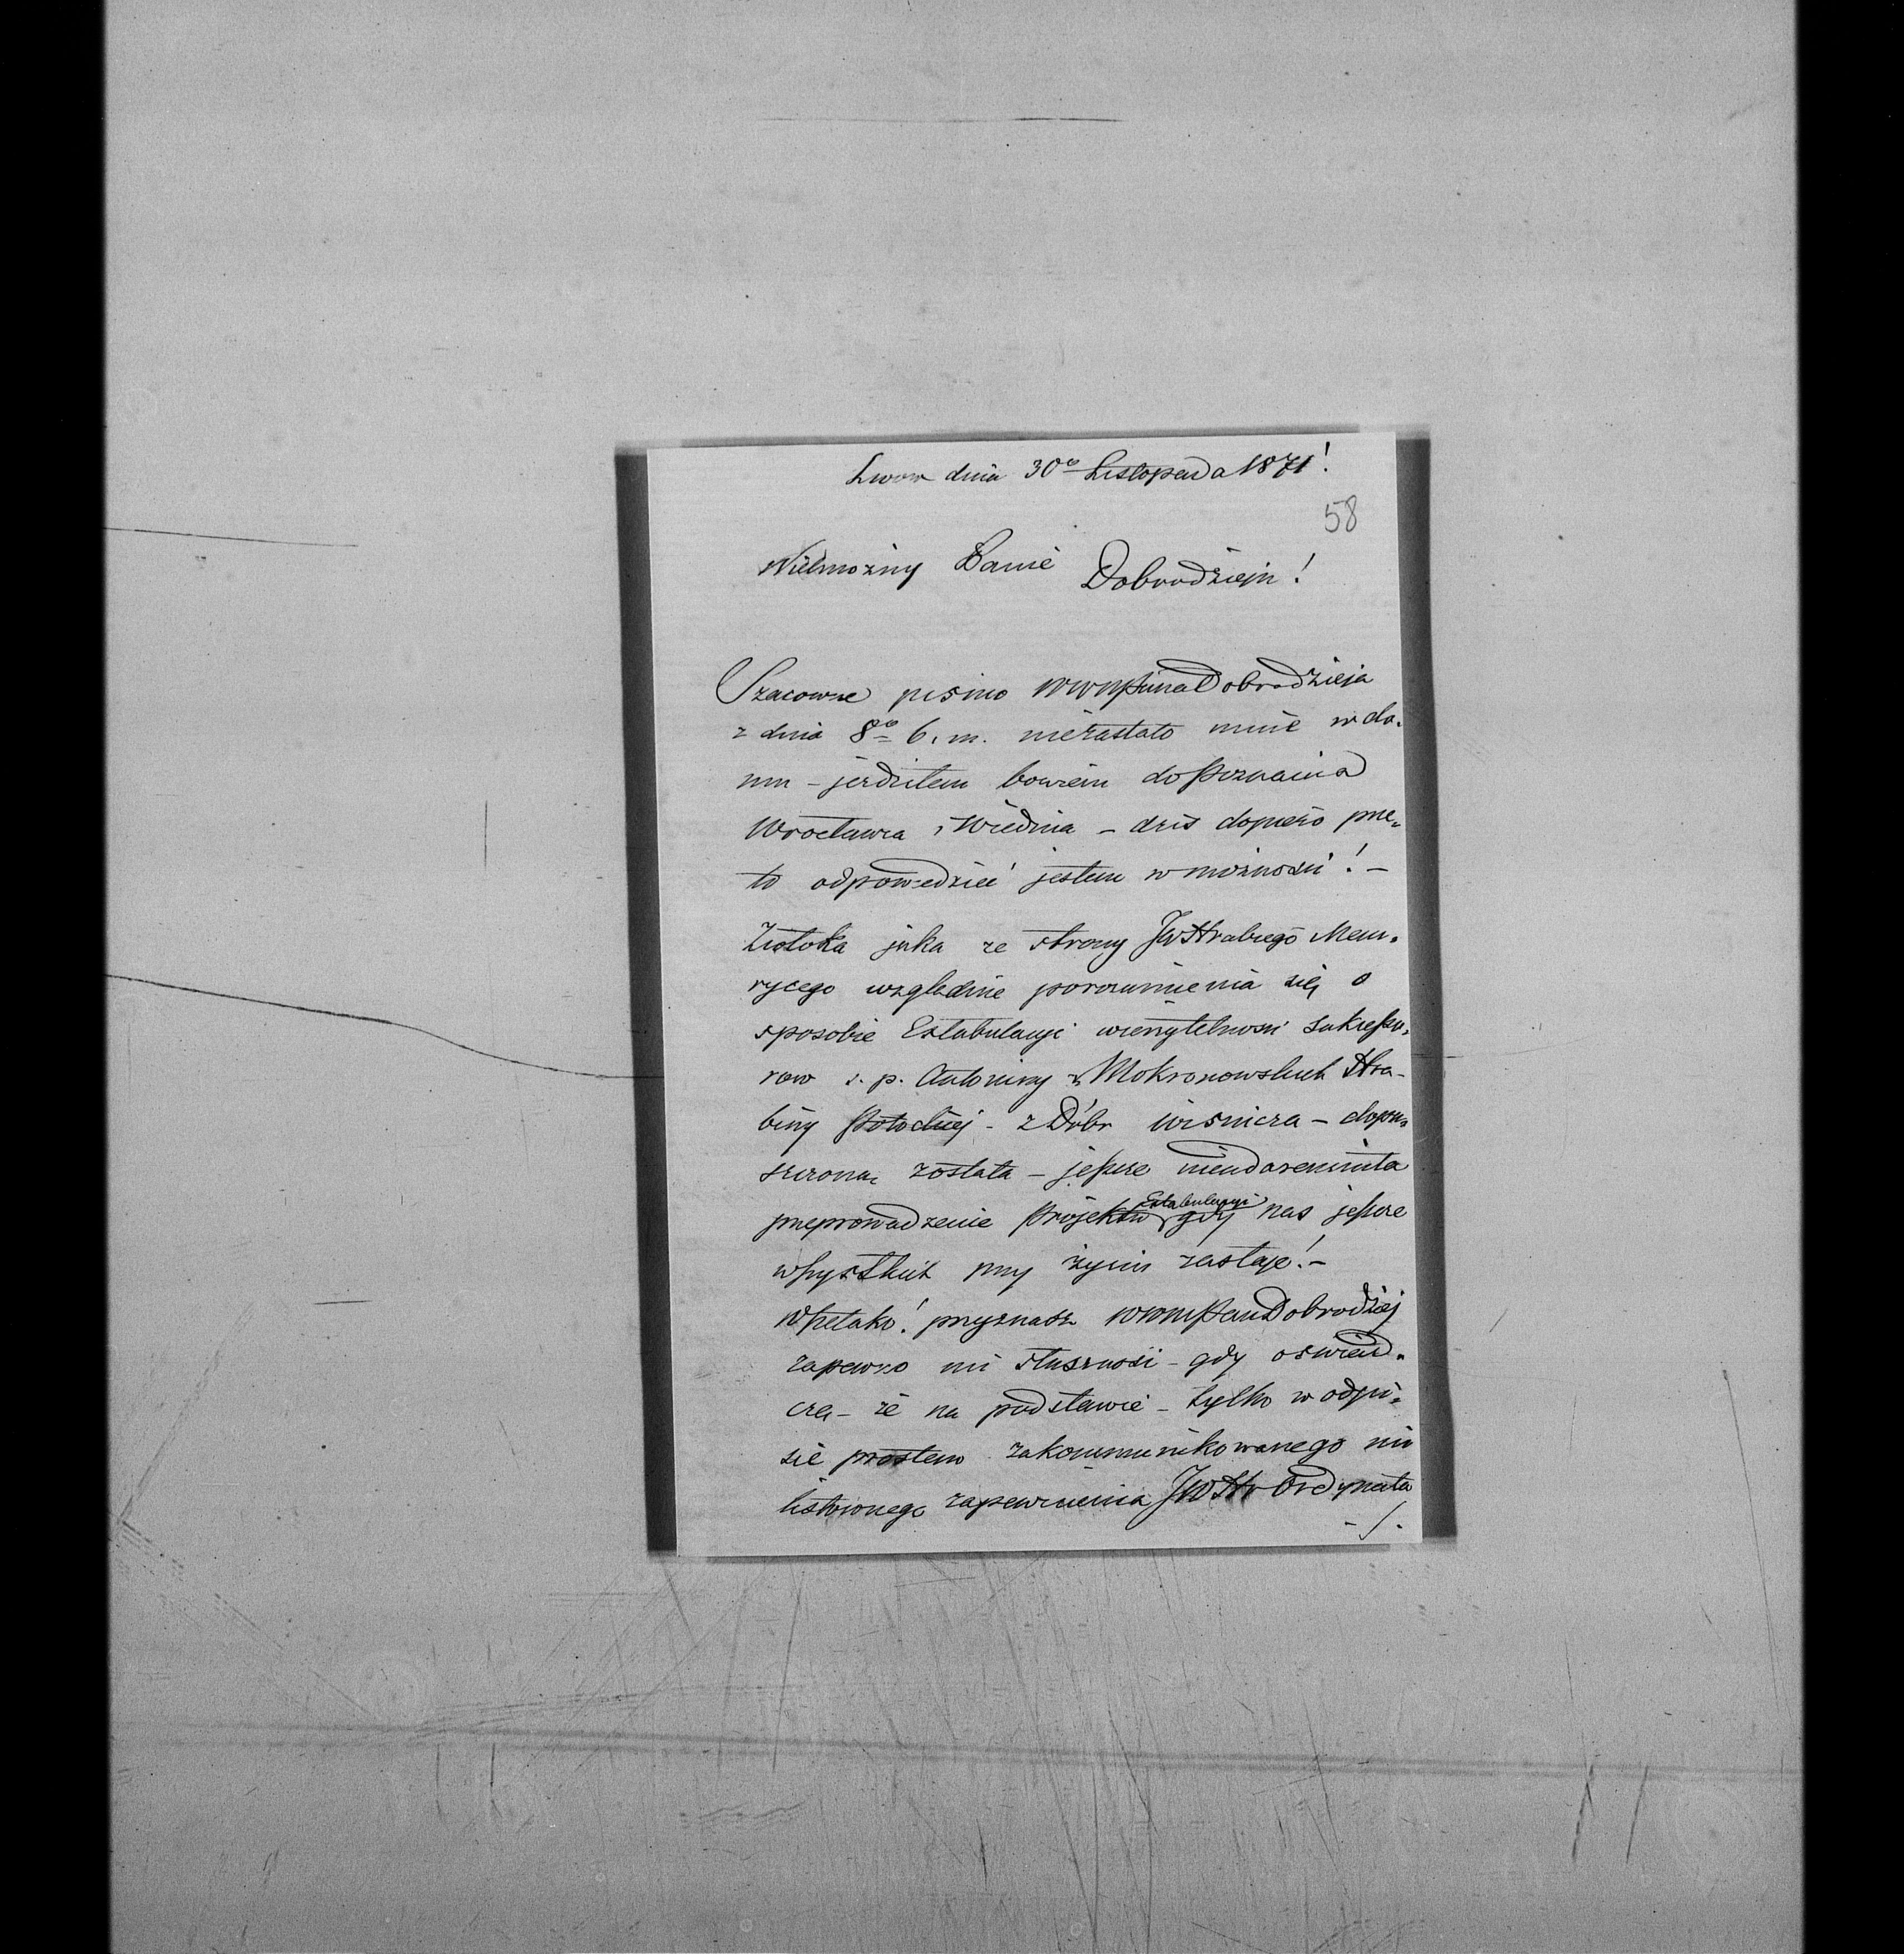 Lwow dnia 30º Listopada 1871!
58
Wielmożny Panie Dobrodzieju!
Szacowne pismo WWMPana Dobrodzieja
z dnia 8º b. m. niezastało mnie w do-
mu - jezdziłem bowiem do Poznania
Wrocławia i Wiednia - dziś dopiero prze-
to odpowiedzieć jestem w możności! -
Zwłoka jaka ze strony JWHrabiego Mau-
rycego względnie porozumienia się o
sposobie Extabulacyi wierzytelnosci sukcesso-
row s. p. Antoniny z Mokronowskich Hra-
biny Potockiej - z Dóbr Wisnicza - dopu-
szczona została - jeszcze nieudaremniła
przeprowadzenie Projektu Extabulacyi gdy nas jeszcze
wszystkich przy życiu zastaje! -
Wszelako! przyznasz WWMPan Dobrodziej
zapewno mi słuszność - gdy oświad-
czę - że na podstawie - tylko w odpi-
sie prostem zakommunikowanego mi
listownego zapewnienia JWHr Ordynata
-/-